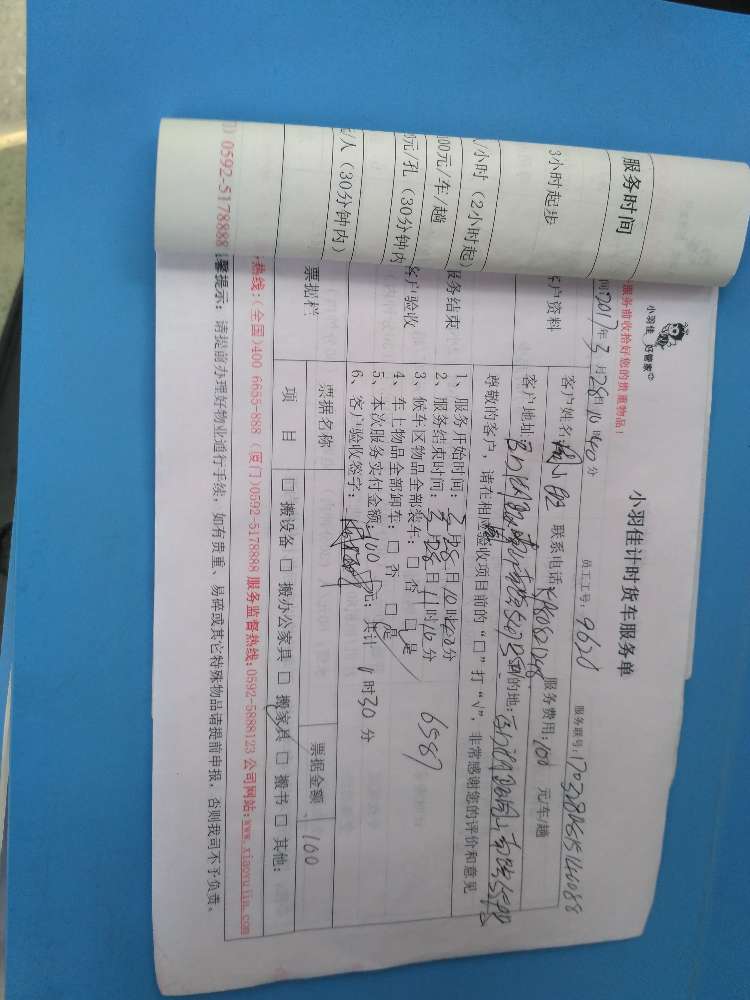 服务时间
3小时起步
/小时（2小时起）
00元/车/趟
0元/孔（30分钟内
/人（30分钟内）
0592-5178888
小羽佳 好管家
小羽佳计时货车服务单
服务前收拾好您的贵重物品！
员工工号：9620
间：2017年3月28日10时40分
客户姓名 联系电话 服务费用：100 元/车/趟
客户资料
客户地址
尊敬的客户，请在相应验收项目前的“□”打“√”，非常感谢您的评价和意见
服务结束
1、服务开始时间：3月28日10时40分
2、服务结束时间：3月28日11时10分
客户验收
3、候车区物品全部装车：□否 □是
4、车上物品全部卸车：□否 □是
5、本次服务实付金额：100元；共计 1时30分
6、客户验收签字：
6587
票据栏
票据名称
票据金额 100
项目
□搬设备 □搬办公家具 □搬家具 □搬书 □其他：
热线：(全国)400 6655-888 (厦门)0592-5178888 服务监督热线：0592-5888123 公司网站：www.xiaoyujia.com
馨提示：请提前办理好物业通行手续，如有贵重、易碎或其它特殊物品请提前申报，否则我司不予负责。